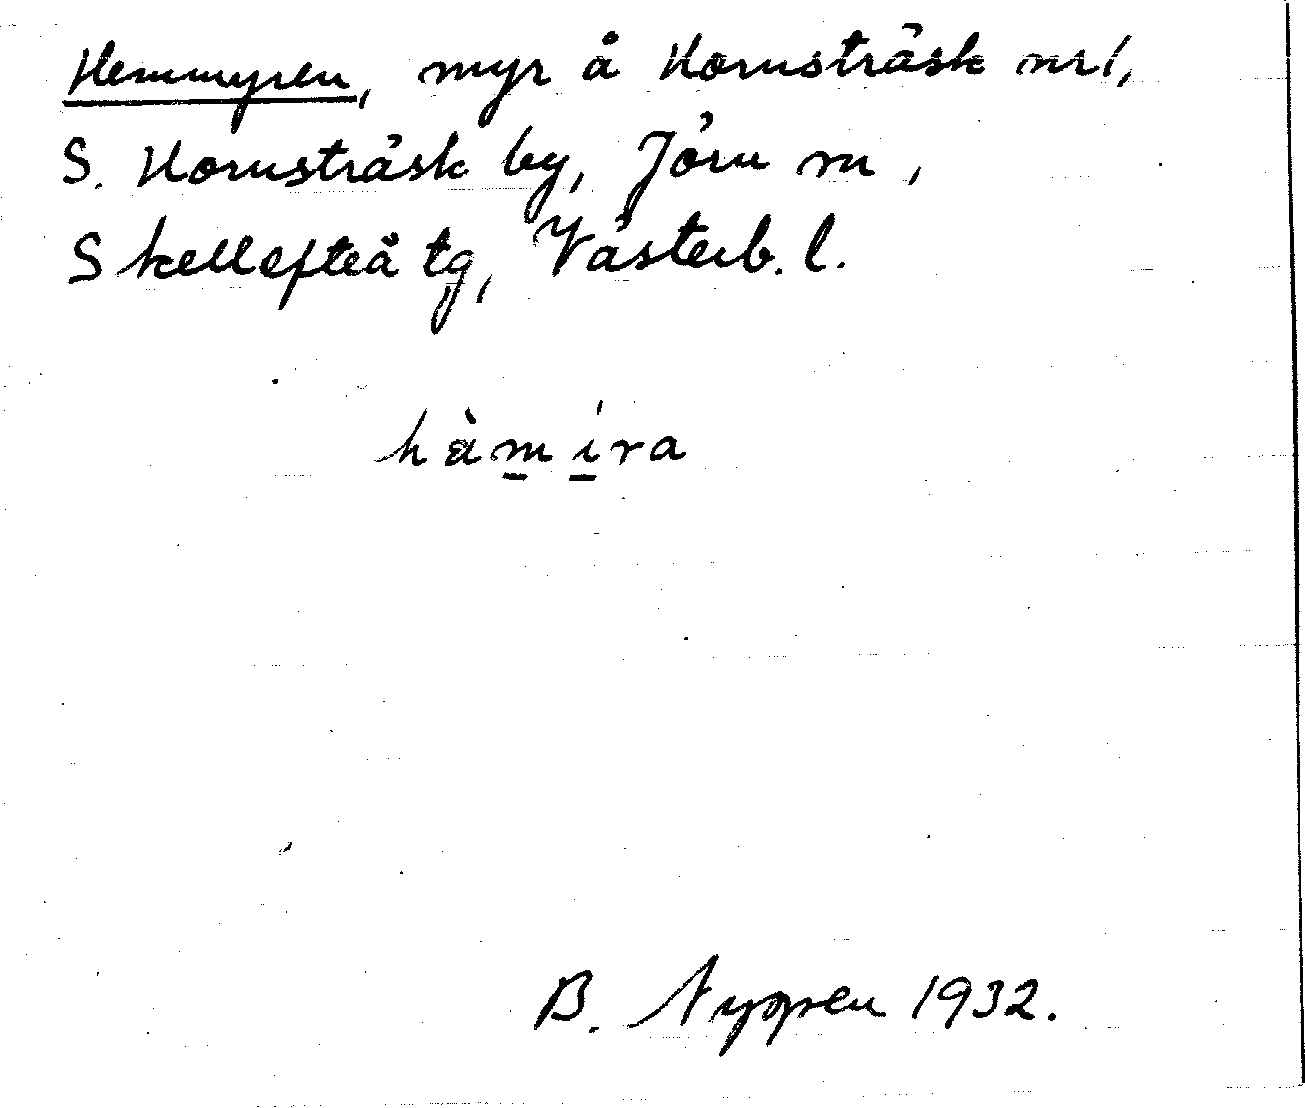 Hemmyren, myr å Hornsträsk nr 1,
S. Hornsträsk by, Jörn sn,
Skellefteå tg, Västerb. l.
hàmíra
B. Nyppen 1932.